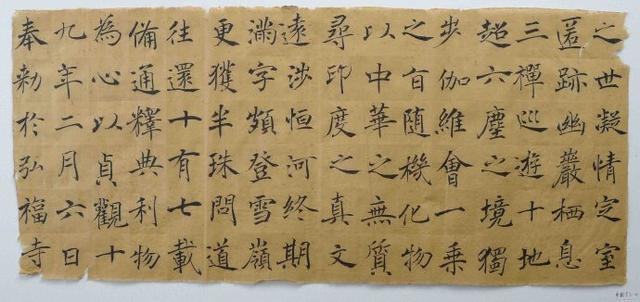 之世凝情定室
匿跡幽巖栖息
三禪巡遊十地
超六塵之境獨
步伽維會一乘
之旨隨機化物
以中華之無質
尋印度之真文
遠涉恒河終期
滿字頻登雪嶺
更獲半珠問道
往還十有七載
備通釋典利物
為心以貞觀十
九年二月六日
奉勅於弘福寺